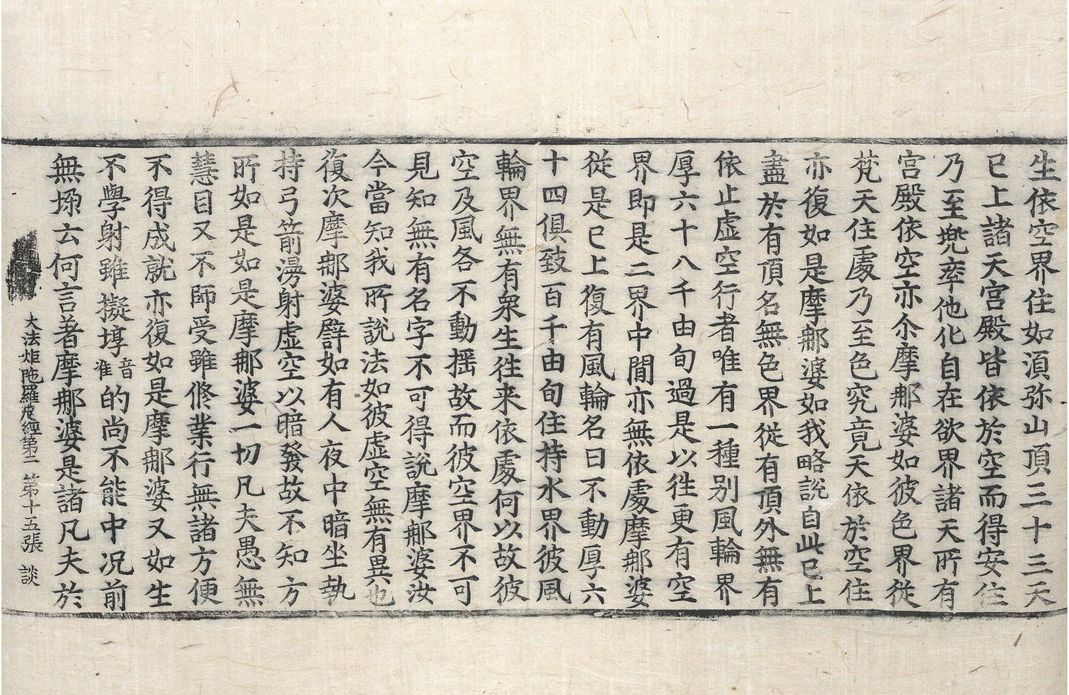 生依空界住如湏弥山頂三十三天
已上諸天宮殿皆依於空而得安住
乃至兜率他化自在欲界諸天所有
宮殿依空亦尒摩那婆如彼色界從
梵天住處乃至色究竟天依於空住
亦復如是摩那婆如我略說自此已上
盡於有頂名無色界從有頂外無有
依止虛空行者唯有一種別風輪界
厚六十八千由旬過是以往更有空
界即是二界中間亦無依處摩那婆
從是已上復有風輪名曰不動厚六
十四俱致百千由旬住持水界彼風
輪界無有衆生往来依處何以故彼
空及風各不動揺故而彼空界不可
見知無有名字不可得說摩那婆汝
今當知我所說法如彼虛空無有異也
復次摩那婆譬如有人夜中暗坐執
持弓箭漫射虛空以暗發故不知方
所如是如是摩那婆一切凡夫愚無
慧目又不師受雖修業行無諸方便
不得成就亦復如是摩那婆又如生
不學射雖擬埻音准的尚不能中况前
大法炬陁羅尼經第二 第十五張 談
無垜云何言者摩那婆是諸凡夫於